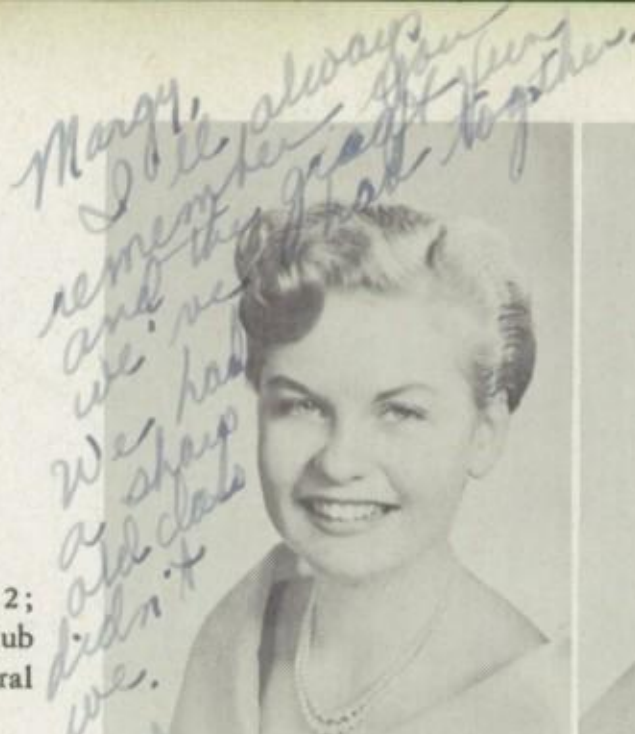 Margy,
I'll always
remember you
and the great fun
we've had together.
We had
a sharp
old class
didn't
we.
2;
ub
ral